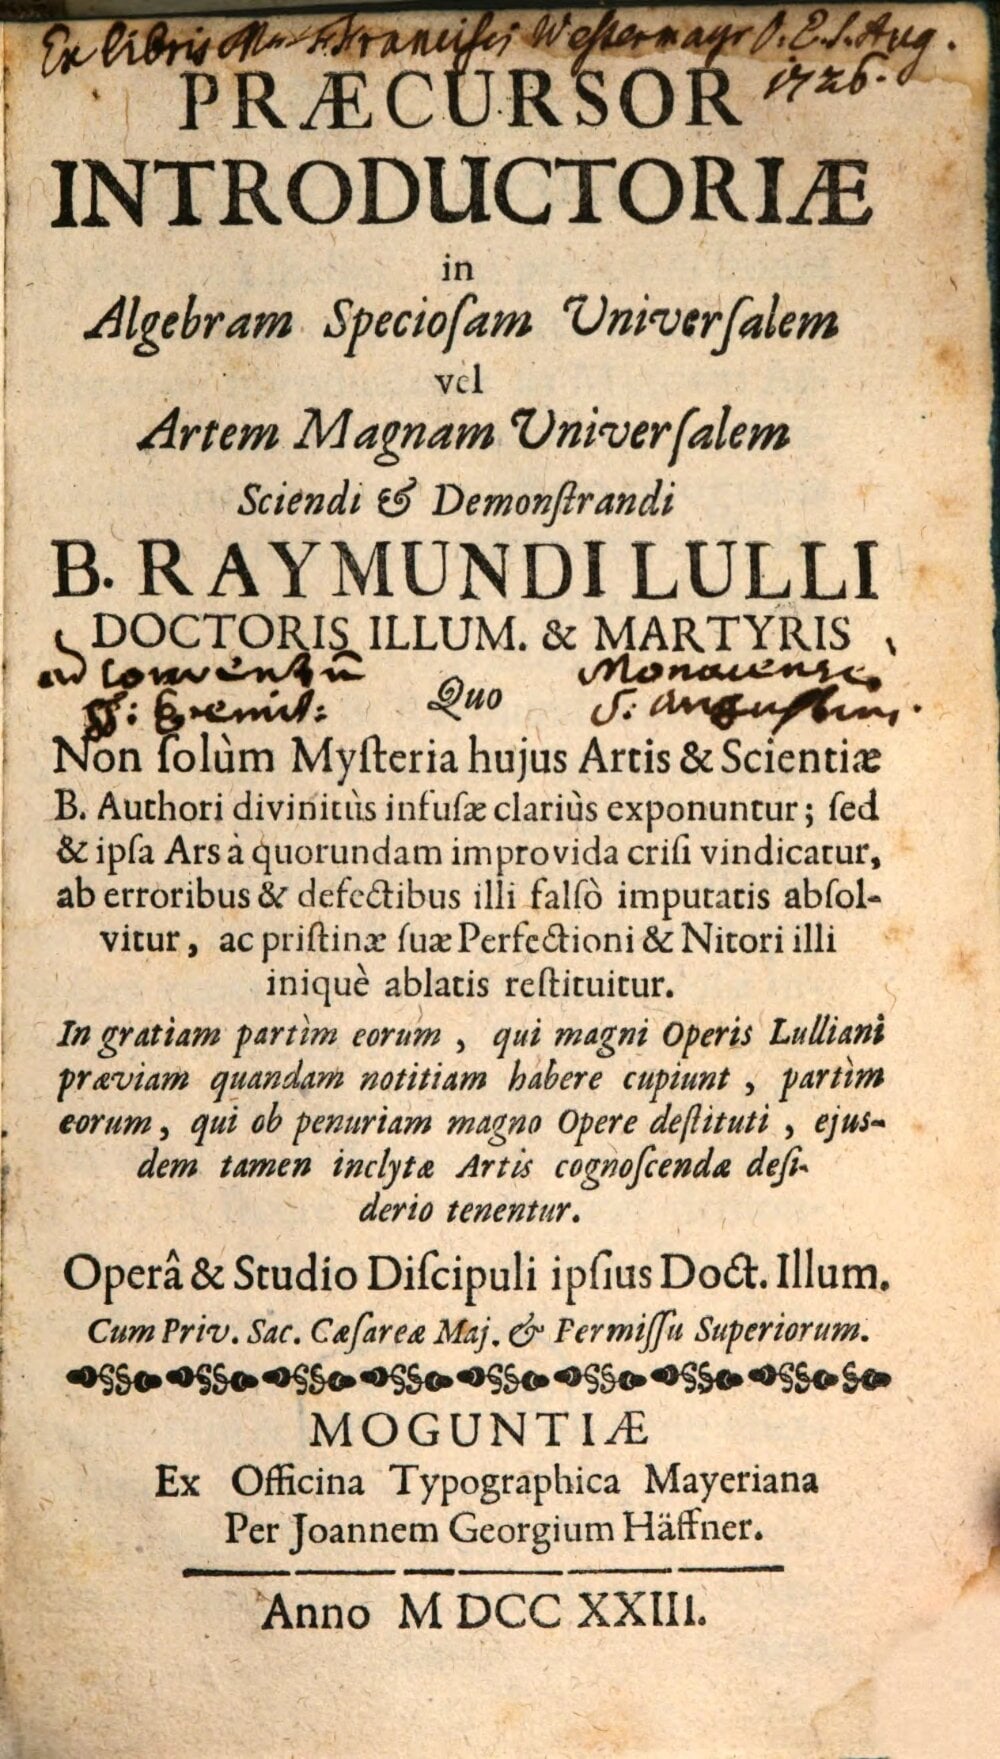 Ex libris Francisci Westermayr O. E. S. Aug.
1726.
PRÆCURSOR
INTRODUCTORIÆ
in
Algebram Specioſam Univerſalem
vel
Artem Magnam Univerſalem
Sciendi & Demonſtrandi
B. RAYMUNDI LULLI
DOCTORIS ILLUM. & MARTYRIS
ad Conventũ Monacense
Quo
ff: Eremit: S: Augustini.
Non ſolùm Myſteria hujus Artis & Scientiæ
B. Authori divinitùs infuſæ clariùs exponuntur; ſed
& ipſa Ars à quorundam improvida criſi vindicatur,
ab erroribus & defectibus illi falſò imputatis abſol-
vitur, ac priſtinæ ſuæ Perfectioni & Nitori illi
iniquè ablatis reſtituitur.
In gratiam partìm eorum, qui magni Operis Lulliani
præviam quandam notitiam habere cupiunt, partìm
eorum, qui ob penuriam magno Opere deſtituti, ejus-
dem tamen inclytæ Artis cognoſcendæ deſi-
derio tenentur.
Operâ & Studio Diſcipuli ipſius Doct. Illum.
Cum Priv. Sac. Cæſareæ Maj. & Permiſſu Superiorum.
MOGUNTIÆ
Ex Officina Typographica Mayeriana
Per Joannem Georgium Häffner.
Anno M DCC XXIII.